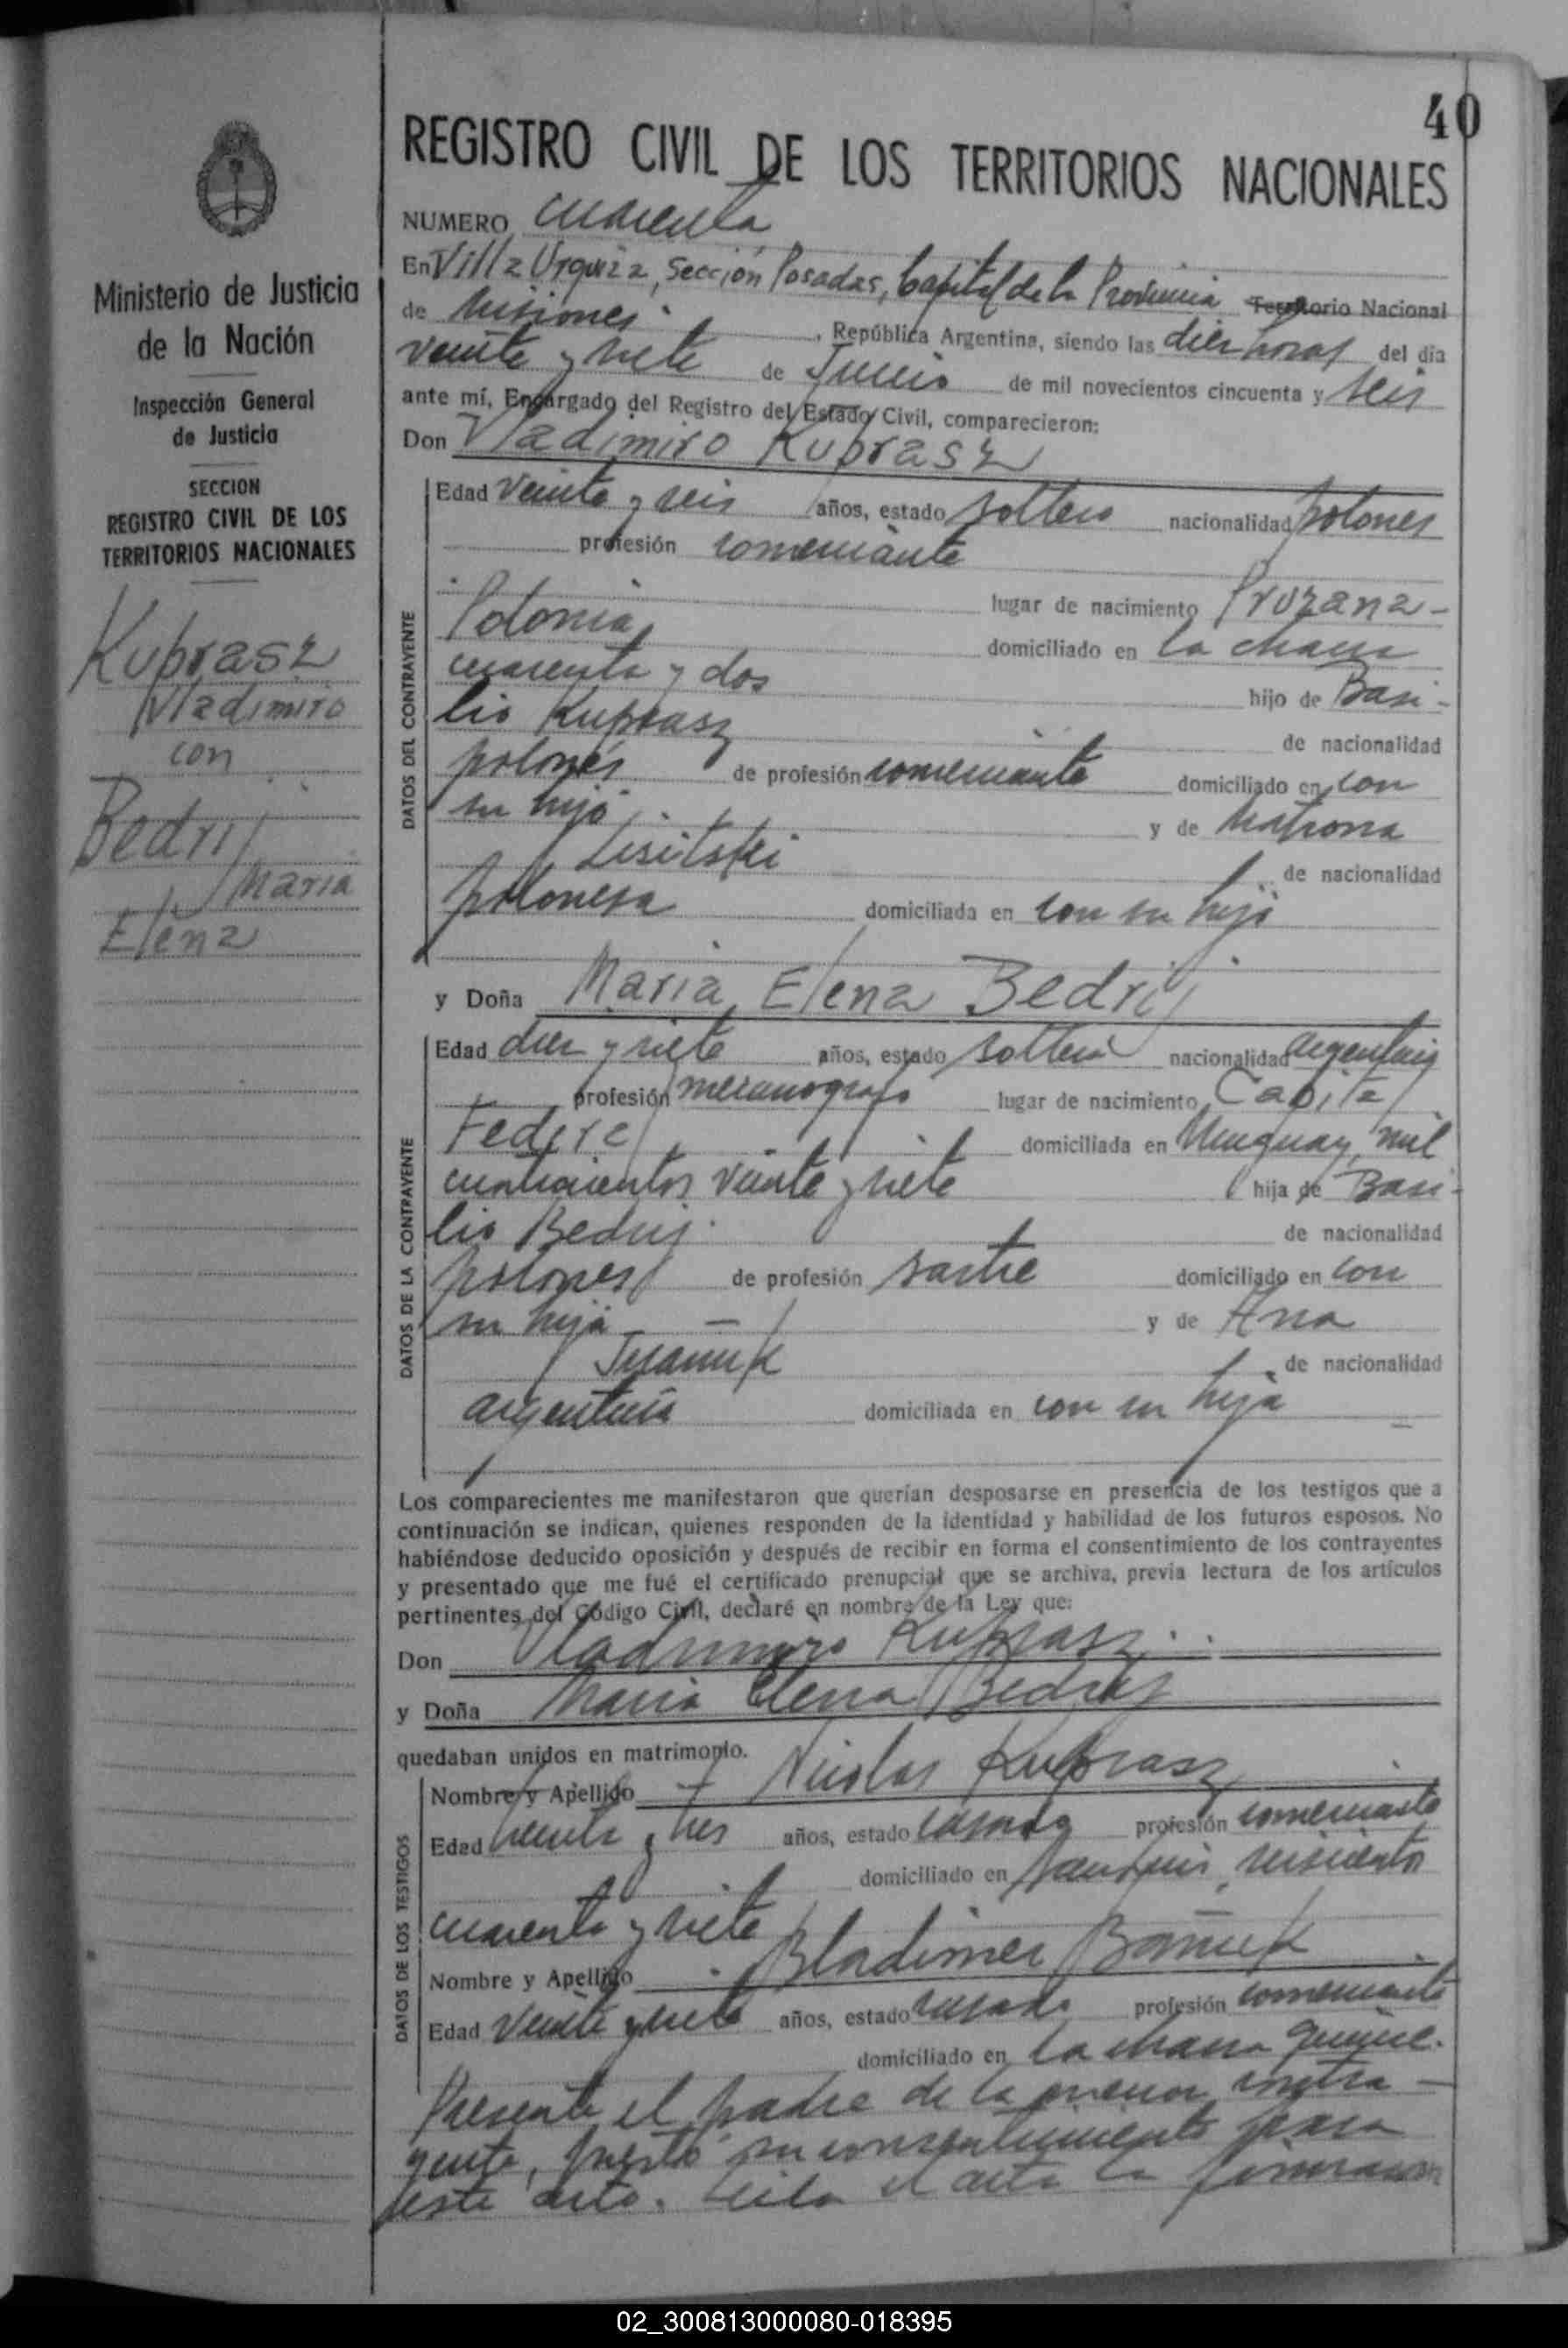 40
REGISTRO CIVIL DE LOS TERRITORIOS NACIONALES
Ministerio de Justicia
de la Nación
Inspección General
de Justicia
SECCION
REGISTRO CIVIL DE LOS
TERRITORIOS NACIONALES
Kuprasz
Vladimiro
con
Bedrij
Maria
Elena
NUMERO cuarenta
En Villa Urquiza, Sección Posadas, Capital de la Provincia Territorio Nacional
de Misiones, República Argentina, siendo las diez horas del día
veinte y siete de Junio de mil novecientos cincuenta y seis
ante mí, Encargado del Registro del Estado Civil, comparecieron:
Don Vladimiro Kuprasz
DATOS DEL CONTRAYENTE
Edad veinte y seis años, estado soltero nacionalidad polones
profesión comerciante
lugar de nacimiento Pruzana-
Polonia domiciliado en la chacra
cuarenta y dos hijo de Basi-
lio Kuprasz de nacionalidad
polonés de profesión comerciante domiciliado en con
su hijo y de Matrona
Lisitski de nacionalidad
polonesa domiciliada en con su hijo
y Doña Maria Elena Bedrij
DATOS DE LA CONTRAYENTE
Edad diez y siete años, estado soltera nacionalidad argentina
profesión mecanografa lugar de nacimiento Capital
Federal domiciliada en Uruguay, mil
cuatrocientos veinte y siete hija de Basi-
lio Bedrij de nacionalidad
polones de profesión sastre domiciliado en con
su hija y de Ana
de nacionalidad
argentina domiciliada en con su hija
Los comparecientes me manifestaron que querían desposarse en presencia de los testigos que a
continuación se indican, quienes responden de la identidad y habilidad de los futuros esposos. No
habiéndose deducido oposición y después de recibir en forma el consentimiento de los contrayentes
y presentado que me fué el certificado prenupcial que se archiva, previa lectura de los artículos
pertinentes del Código Civil, declaré en nombre de la Ley que:
Don Vladimiro Kuprasz
y Doña Maria Elena Bedrij
quedaban unidos en matrimonio.
DATOS DE LOS TESTIGOS
Nombre y Apellido Nicolas Kuprasz
Edad treinta y tres años, estado casado profesión comerciante
domiciliado en San Luis, seiscientos
cuarenta y siete
Nombre y Apellido Bladimer
Edad veinte y siete años, estado casado profesión comerciante
domiciliado en la chacra quince.
Presente el padre de la menor contra-
yente, prestó su consentimiento para
este acto. Leída el acta la firmaron
02_300813000080-018395